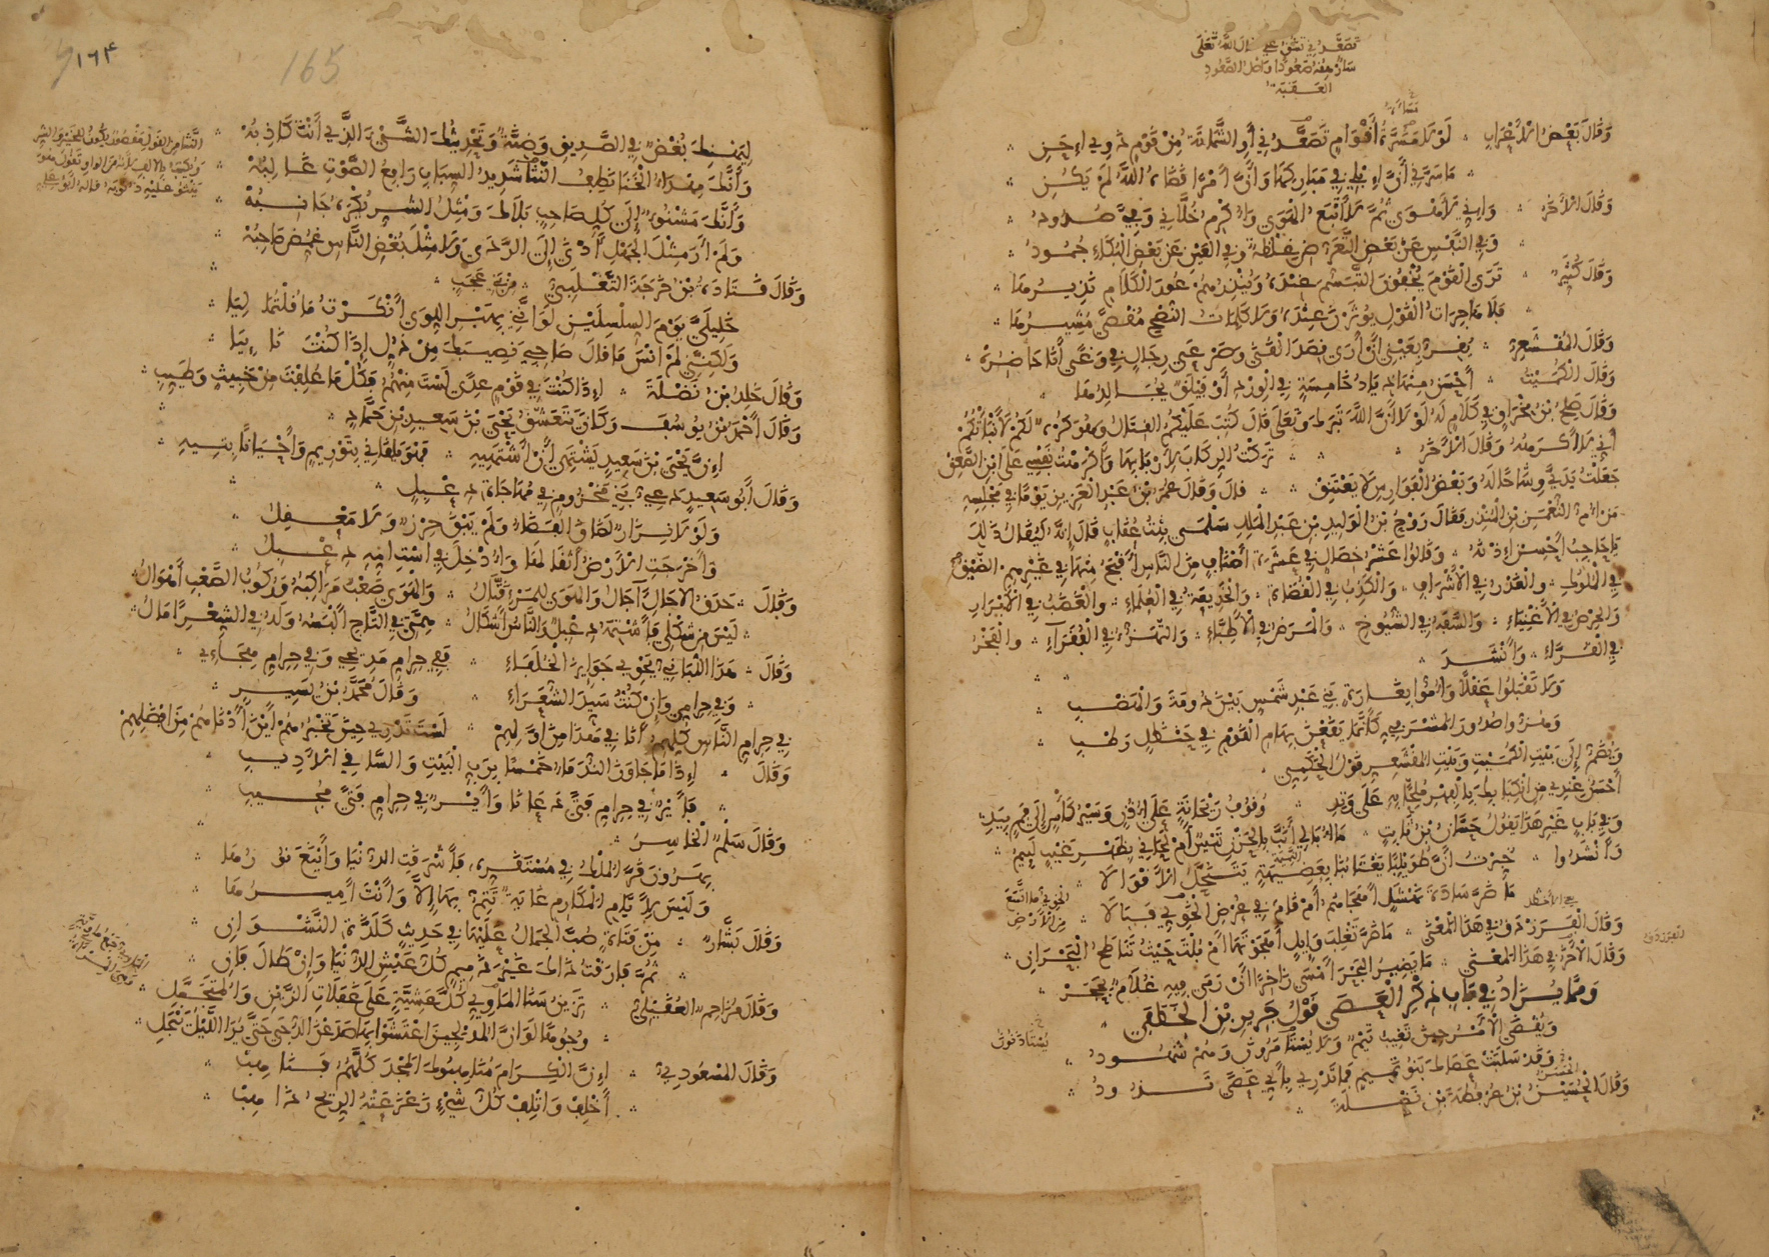 تصعد في تشق علي قال الله تعلى
سأرهقه صعودا واصل الصعود
العقبة
وقال بعض الأعراب لولا مسرة أقوام تصعدني أو الشماتة من قوم ذوي احن
ما سرني أن إبلي في مباركها وأن أمرا قضاه الله لم يكن
وقال الآخر وإني لأهوى ثم لا أتبع الهوى وأكرم خلاني وفي صدود
وفي النفس عن بعض التعرض غلظة وفي العين عن بعض البكاء جمود
وقال كثير ترى القوم يخفون التبسم عنده وينذرهم عور الكلام نذيرها
فلا هاجرات القول يؤثرن عنده ولا كلمات النصح مقصى مشيرها
وقال المقشعر يقر بعيني أن أرى قصد القنى وصرعى رجال في وغى أنا حاضره
وقال الكميت أحسن منها ذياد خامسة في الورد أو فيلق يجالدها
وقال صلح بن مخراق في كلام له لولا أن الله تبرك وتعلى قال كتب عليكم القتال وهو كره لكم لأنبأتكم
أني لا أكرهه وقال الآخر تركت الركاب لأربابها وأكرهت نفسي على ابن الصعق
جعلت يدي وشاحا له وبعض الفوارس لا يعتنق قال وقال عمر بن عبد العزيز يوما في مجلسه
من أم النعمن بن المنذر فقال روح بن الوليد بن عبد الملك سلمى بنت عقاب قال إنه ليقال ذلك
يا حاجب أحسن إذنه وقالوا عشر خصال في عشرة أصناف من الناس أقبح منها في غيرهم الضيق
في الملوك والغدر في الأشراف والكذب في القضاة والخديعة في العلماء والغضب في الأبرار
والحرص في الأغنياء والسفه في الشيوخ والمرض في الأطباء والتهزء في الفقراء والفخر
في القراء وأنشد
ولا تقبلوا عقلا وأموا بغارة بني عبد شمس بين دومة والهضب
وهزوا صدور المشرفي كأنما يقعن بهام القوم في حنظل رطب
ويضم إلى بيت الكميت وبيت المقشعر قول الحكمي
أحسن عندي من انكبابك بالفهر ملحا به على وتد وقوف ريحانة على أذن وسير كأس إلى فم بيد
وفي باب غير هذا يقول حسان بن ثابت ما أبالي أنب بالحزن تيس أم لحاني بظهر غيب لئيم
وأنشدوا خبرت أن طويلبا يغتابنا بعضيهة يتنحل الأقوالا
ما ضر سادة نهشل أهجاهم أم قام في عرض الخوي فبالا
وقال الفرزدق في هذا المعنى ما ضر تغلب وايل أهجوتها أم بلت حيث تناطح البحران
وقال الآخر في هذا المعنى ما يضير البحر أمسى زاخرا أن رمى فيه غلام بحجر
ومما يزاد في باب ذكر العصى قول جرير بن الخطفى
ويقضى الأمر حين تغيب تيم ولا يستأمرون وهم شهود
وقد سلبت عصاك بنو تميم فما تدري بأي عصى تذود
وقال الحسين بن عرفطة بن نضلة
١٦٤
165
ليهنك بغض في الصديق وضنة وتحديثك الشيء الذي أنت كاذبه
وأنك مهداء الخنا نطف النثا شديد السباب رافع الصوت غالبه
وأنك مشنوء إلى كل صاحب بلاك ومثل الشر يكره جانبه
ولم أر مثل الجهل أدنى إلى الردى ولا مثل بغض الناس غمض صاحبه
وقال قتادة بن خرجة الثعلبي من بني عجب
خليلي يوم السلسلين لو أنني بهبر اللوى أنكرت ما قلتما ليا
ولكنني لم أنس ما قال صاحبي نصيبك من ذل إذا كنت نائيا
وقال خلد بن نضلة إذا كنت في قوم عدى لست منهم فكل ما علفت من خبيث وطيب
وقال أحمد بن يوسف وكان يتعشق يحيى بن سعيد بن حماد
إن يحيى بن سعيد يشتهي أن أشتهيه فهو يلقاني بتوريم وأحيانا بتيه
وقال أبو سعيد دعي بني مخزوم في مهاجاة دعبل
ولولا نزار لضاق الفضاء ولم يبق حرز ولا معقل
وأخرجت الأرض أثقالها وأدخل في است امه دعبل
وقال حدق الآجال آجال والهوى للمرء قتال والهوى صعب مراكبه وركوب الصعب أهوال
ليس من شكلي فأشتمه دعبل والناس أشكال همتي في التاج ألبسه وله في الشعر آمال
وقال هذا اللباني يحوي جوايز الخلفاء ففي حرام مديحي وفي حرام هجائي
وفي حرامي وإن كنت سيد الشعراء وقال محمد بن يسير
في حرام الناس كلهم أنا في هذا من اولهم لست تدري حين تخبرهم أين أدناهم من افضلهم
وقال إذا ما جاوز الندماء خمسا برب البيت والساقي الأديب
فأيري في حرام فتى دعانا وأير في حرام فتى مجيب
وقال سلم الخاسر
بهرون قر الملك في مستقره فأشرقت الدنيا وأينع نورها
وليس لأيام المكارم غاية تتم بها إلا وأنت أميرها
وقال بشار من فتاة صب الجمال عليها في حديث كلذة النشوان
ثم فارقت ذاك غير ذميم كل عيش الدنيا وإن طال فان
وقال مزاحم العقيلي تزين سنا الماوي كل عشية على غفلات الزين والمتجمل
وجوه لو ان المدلجين اعتشوا بها صدعن الدجى حتى ترى الليل ينجلي
وقال المسعودي إن الكرام مناهبوك المجد كلهم فناهب
أخلف واتلف كل شيء زعزعته الريح ذاهب